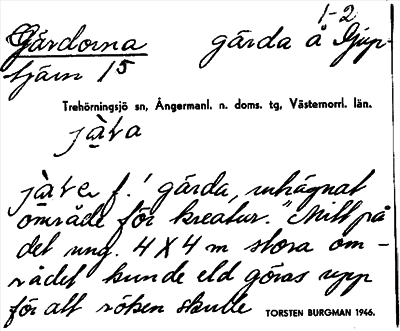 1-2
Gärdorna gärda å Djup-
tjärn 15
Trehörningsjö sn, Ångermanl. n. doms. tg, Västernorrl. län.
f.! gärda, inhägnat
område för kreatur. "Mitt på
det ung. 4 X 4 m stora om-
rådet kunde eld göras upp
för att röken skulle
TORSTEN BURGMAN 1946.